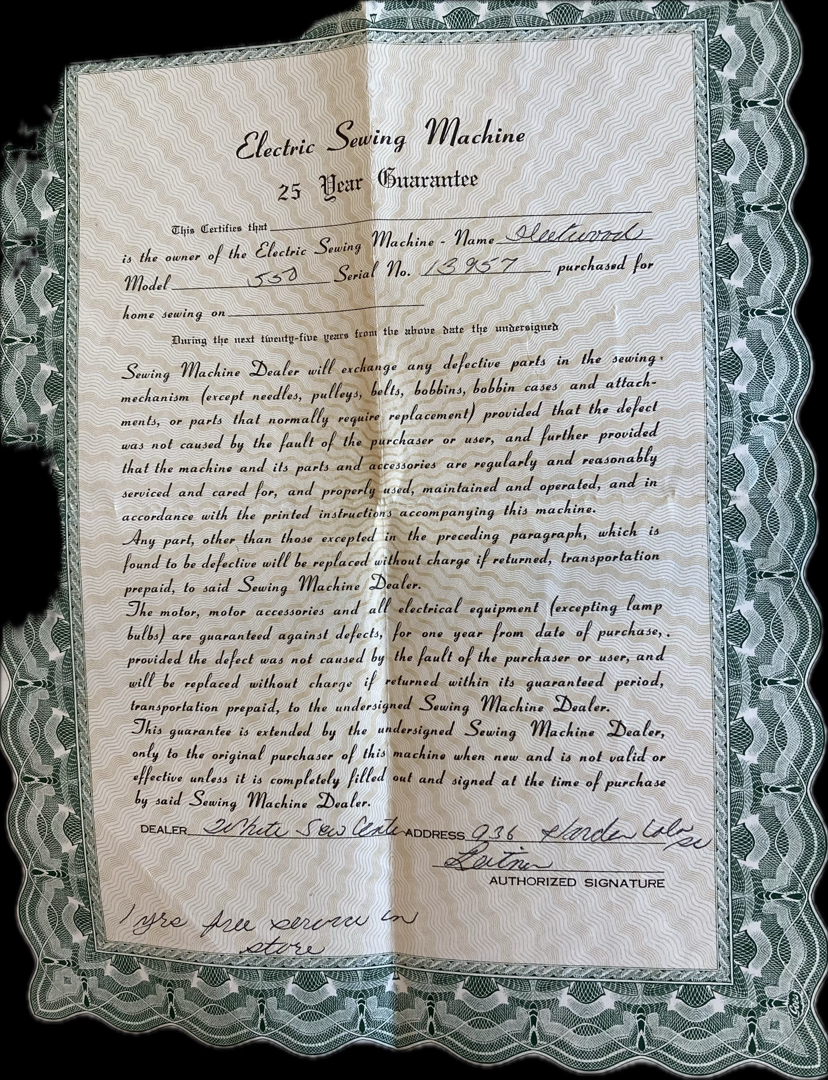 Electric Sewing Machine
25 Year Guarantee
This Certifies that
is the owner of the Electric Sewing Machine - Name Fleetwood
Model 550 Serial No. 13957 purchased for
home sewing on
During the next twenty-five years from the above date the undersigned
Sewing Machine Dealer will exchange any defective parts in the sewing
mechanism (except needles, pulleys, belts, bobbins, bobbin cases and attach-
ments, or parts that normally require replacement) provided that the defect
was not caused by the fault of the purchaser or user, and further provided
that the machine and its parts and accessories are regularly and reasonably
serviced and cared for, and properly used, maintained and operated, and in
accordance with the printed instructions accompanying this machine.
Any part, other than those excepted in the preceding paragraph, which is
found to be defective will be replaced without charge if returned, transportation
prepaid, to said Sewing Machine Dealer.
The motor, motor accessories and all electrical equipment (excepting lamp
bulbs) are guaranteed against defects, for one year from date of purchase,.
provided the defect was not caused by the fault of the purchaser or user, and
will be replaced without charge if returned within its guaranteed period,
transportation prepaid, to the undersigned Sewing Machine Dealer.
This guarantee is extended by the undersigned Sewing Machine Dealer,
only to the original purchaser of this machine when new and is not valid or
effective unless it is completely filled out and signed at the time of purchase
by said Sewing Machine Dealer.
DEALER White Sew Center ADDRESS 936 Harden Cola SC
Leitner
AUTHORIZED SIGNATURE
1 yrs free service in
store